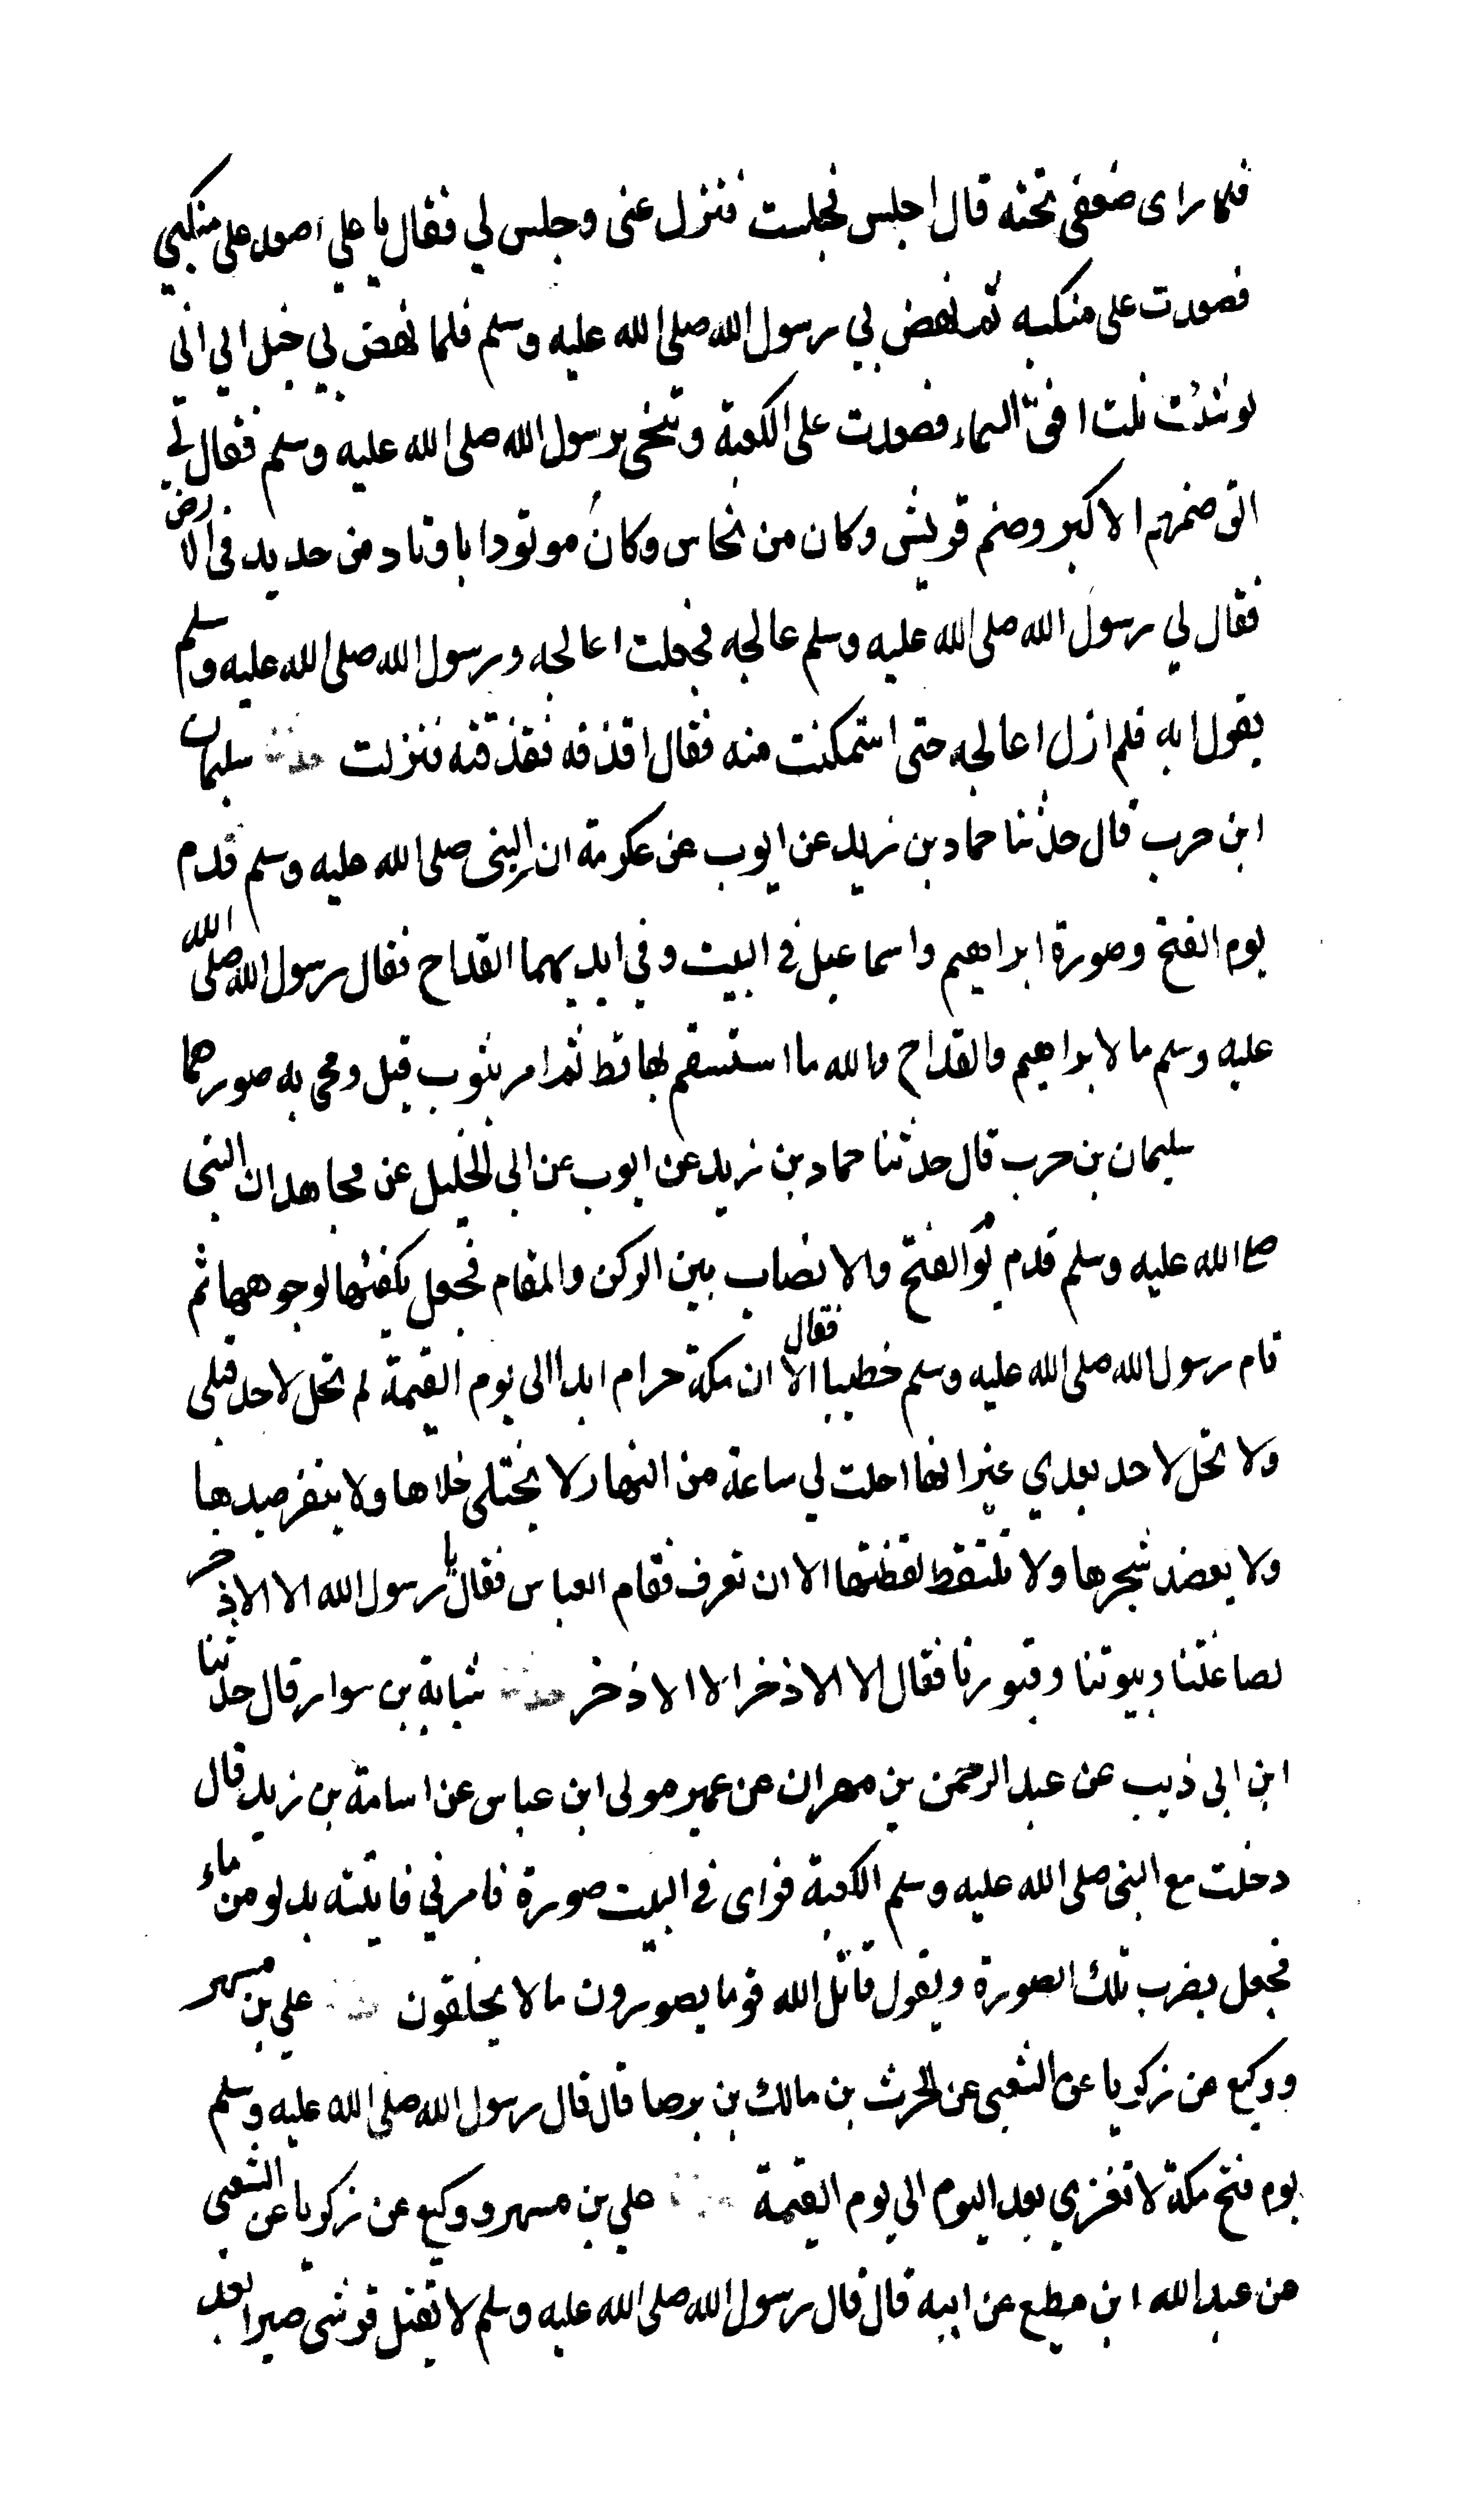 فلما راى ضعفى تحته قال اجلس فجلست فنزل عنى وجلس لي فقال يا علي اصعد على منكبي
فصعدت على منكبه ثم نهض بي رسول الله صلى الله عليه وسلم فلما نهض بي خيل الي اني
لو شئت نلت افق السماء فصعدت على الكعبة وتنحى رسول الله صلى الله عليه وسلم فقال لي
الق صنمهم الاكبر وصنم قريش وكان من نحاس وكان موتودا باوتاد من حديد في الارض
فقال لي رسول الله صلى الله عليه وسلم عالجه فجعلت اعالجه ورسول الله صلى الله عليه وسلم
يقول ايه فلم ازل اعالجه حتى استمكنت منه فقال اقذفه فقذفته فنزلت حدثنا سليمان
ابن حرب قال حدثنا حماد بن زيد عن ايوب عن عكرمة ان النبى صلى الله عليه وسلم قدم
يوم الفتح وصورة ابراهيم واسماعيل في البيت وفي ايديهما القداح فقال رسول الله صلى الله
عليه وسلم ما لابراهيم والقداح والله ما استسقم بها قط ثم امر بثوب فبل ومحى به صورهما
سليمان بن حرب قال حدثنا حماد بن زيد عن ايوب عن ابي الخليل عن مجاهد ان النبى
صلى الله عليه وسلم قدم يوم الفتح والانصاب بين الركن والمقام فجعل يكفئها لوجوهها ثم
قام رسول الله صلى الله عليه وسلم خطيبا فقال الا ان مكة حرام ابدا الى يوم القيمة لم تحل لاحد قبلى
ولا تحل لاحد بعدي غير انها احلت لي ساعة من النهار لا يختلى خلاها ولا ينفر صيدها
ولا يعضد شجرها ولا تلتقط لقطتها الا ان تعرف فقام العباس فقال يا رسول الله الا الاذخر
لصاغتنا وبيوتنا وقبورنا فقال الا الاذخر الا الاذخر حدثنا شبابة بن سوار قال حدثنا
ابن ابي ذيب عن عبد الرحمن بن مهران عن عمير مولى ابن عباس عن اسامة بن زيد قال
دخلت مع النبى صلى الله عليه وسلم الكعبة فراى في البيت صورة فامرني فاتيته بدلو من ماء
فجعل يضرب تلك الصورة ويقول قاتل الله قوما يصورون ما لا يخلقون حدثنا علي بن مسهر
ووكيع عن زكريا عن الشعبي عن الحرث بن مالك بن برصا قال قال رسول الله صلى الله عليه وسلم
يوم فتح مكة لا تغزي بعد اليوم الي يوم القيمة حدثنا علي بن مسهر ووكيع عن زكريا عن الشعبي
عن عبد الله ابن مطيع عن ابيه قال قال رسول الله صلى الله عليه وسلم لا يقتل قرشى صبرا بعد